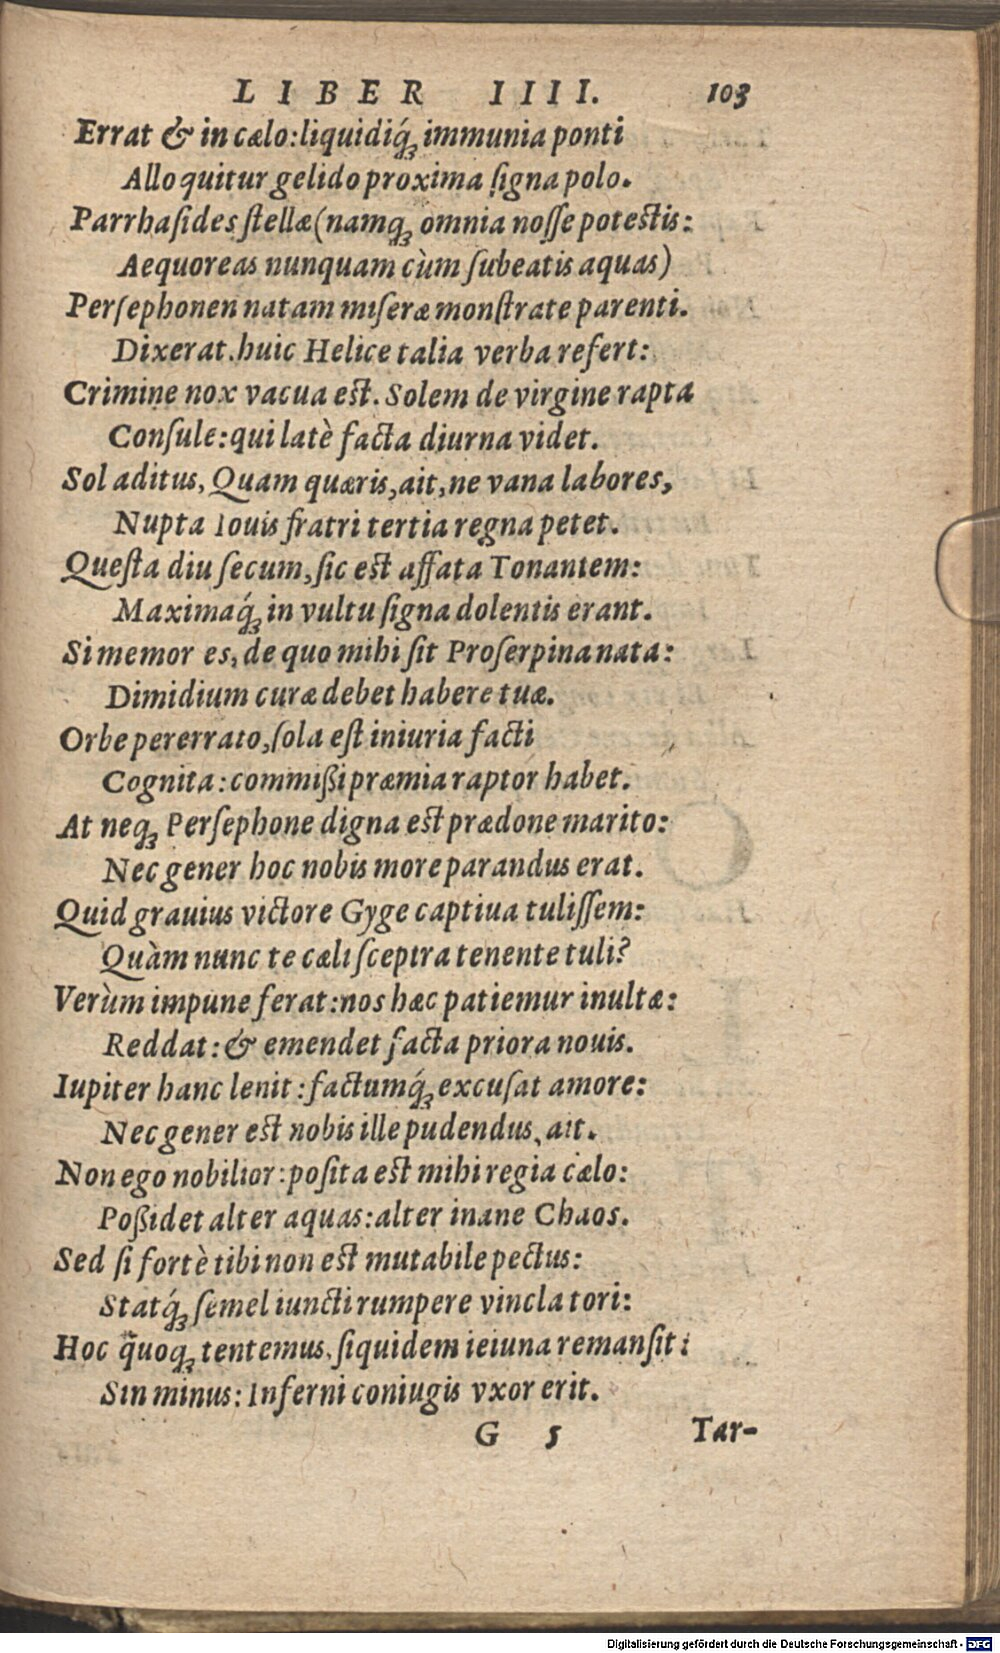 LIBER IIII. 103
Errat & in cælo: liquidiq́ꝫ immunia ponti
Alloquitur gelido proxima ſigna polo.
Parrhaſides ſtellæ (namqꝫ omnia noſſe poteſtis:
Aequoreas nunquam cùm ſubeatis aquas)
Perſephonen natam miſeræ monſtrate parenti.
Dixerat. huic Helice talia verba refert:
Crimine nox vacua eſt. Solem de virgine rapta
Conſule: qui latè facta diurna videt.
Sol aditus, Quam quæris, ait, ne vana labores,
Nupta Iouis fratri tertia regna petet.
Queſta diu ſecum, ſic eſt affata Tonantem:
Maximaq́ꝫ in vultu ſigna dolentis erant.
Si memor es, de quo mihi ſit Proſerpina nata:
Dimidium curæ debet habere tuæ.
Orbe pererrato, ſola eſt iniuria facti
Cognita: commißi præmia raptor habet.
At neqꝫ Perſephone digna eſt prædone marito:
Nec gener hoc nobis more parandus erat.
Quid grauius victore Gyge captiua tuliſſem:
Quàm nunc te cæli ſceptra tenente tuli?
Verùm impune ferat: nos hæc patiemur inultæ:
Reddat: & emendet facta priora nouis.
Iupiter hanc lenit: factumq́ꝫ excuſat amore:
Nec gener eſt nobis ille pudendus, ait.
Non ego nobilior: poſita eſt mihi regia cælo:
Poßidet alter aquas: alter inane Chaos.
Sed ſi fortè tibi non eſt mutabile pectus:
Statq́ꝫ ſemel iuncti rumpere vincla tori:
Hoc quoqꝫ tentemus, ſiquidem ieiuna remanſit:
Sin minus: Inferni coniugis vxor erit.
G 5 Tar-
Digitalisierung gefördert durch die Deutsche Forschungsgemeinschaft - DFG